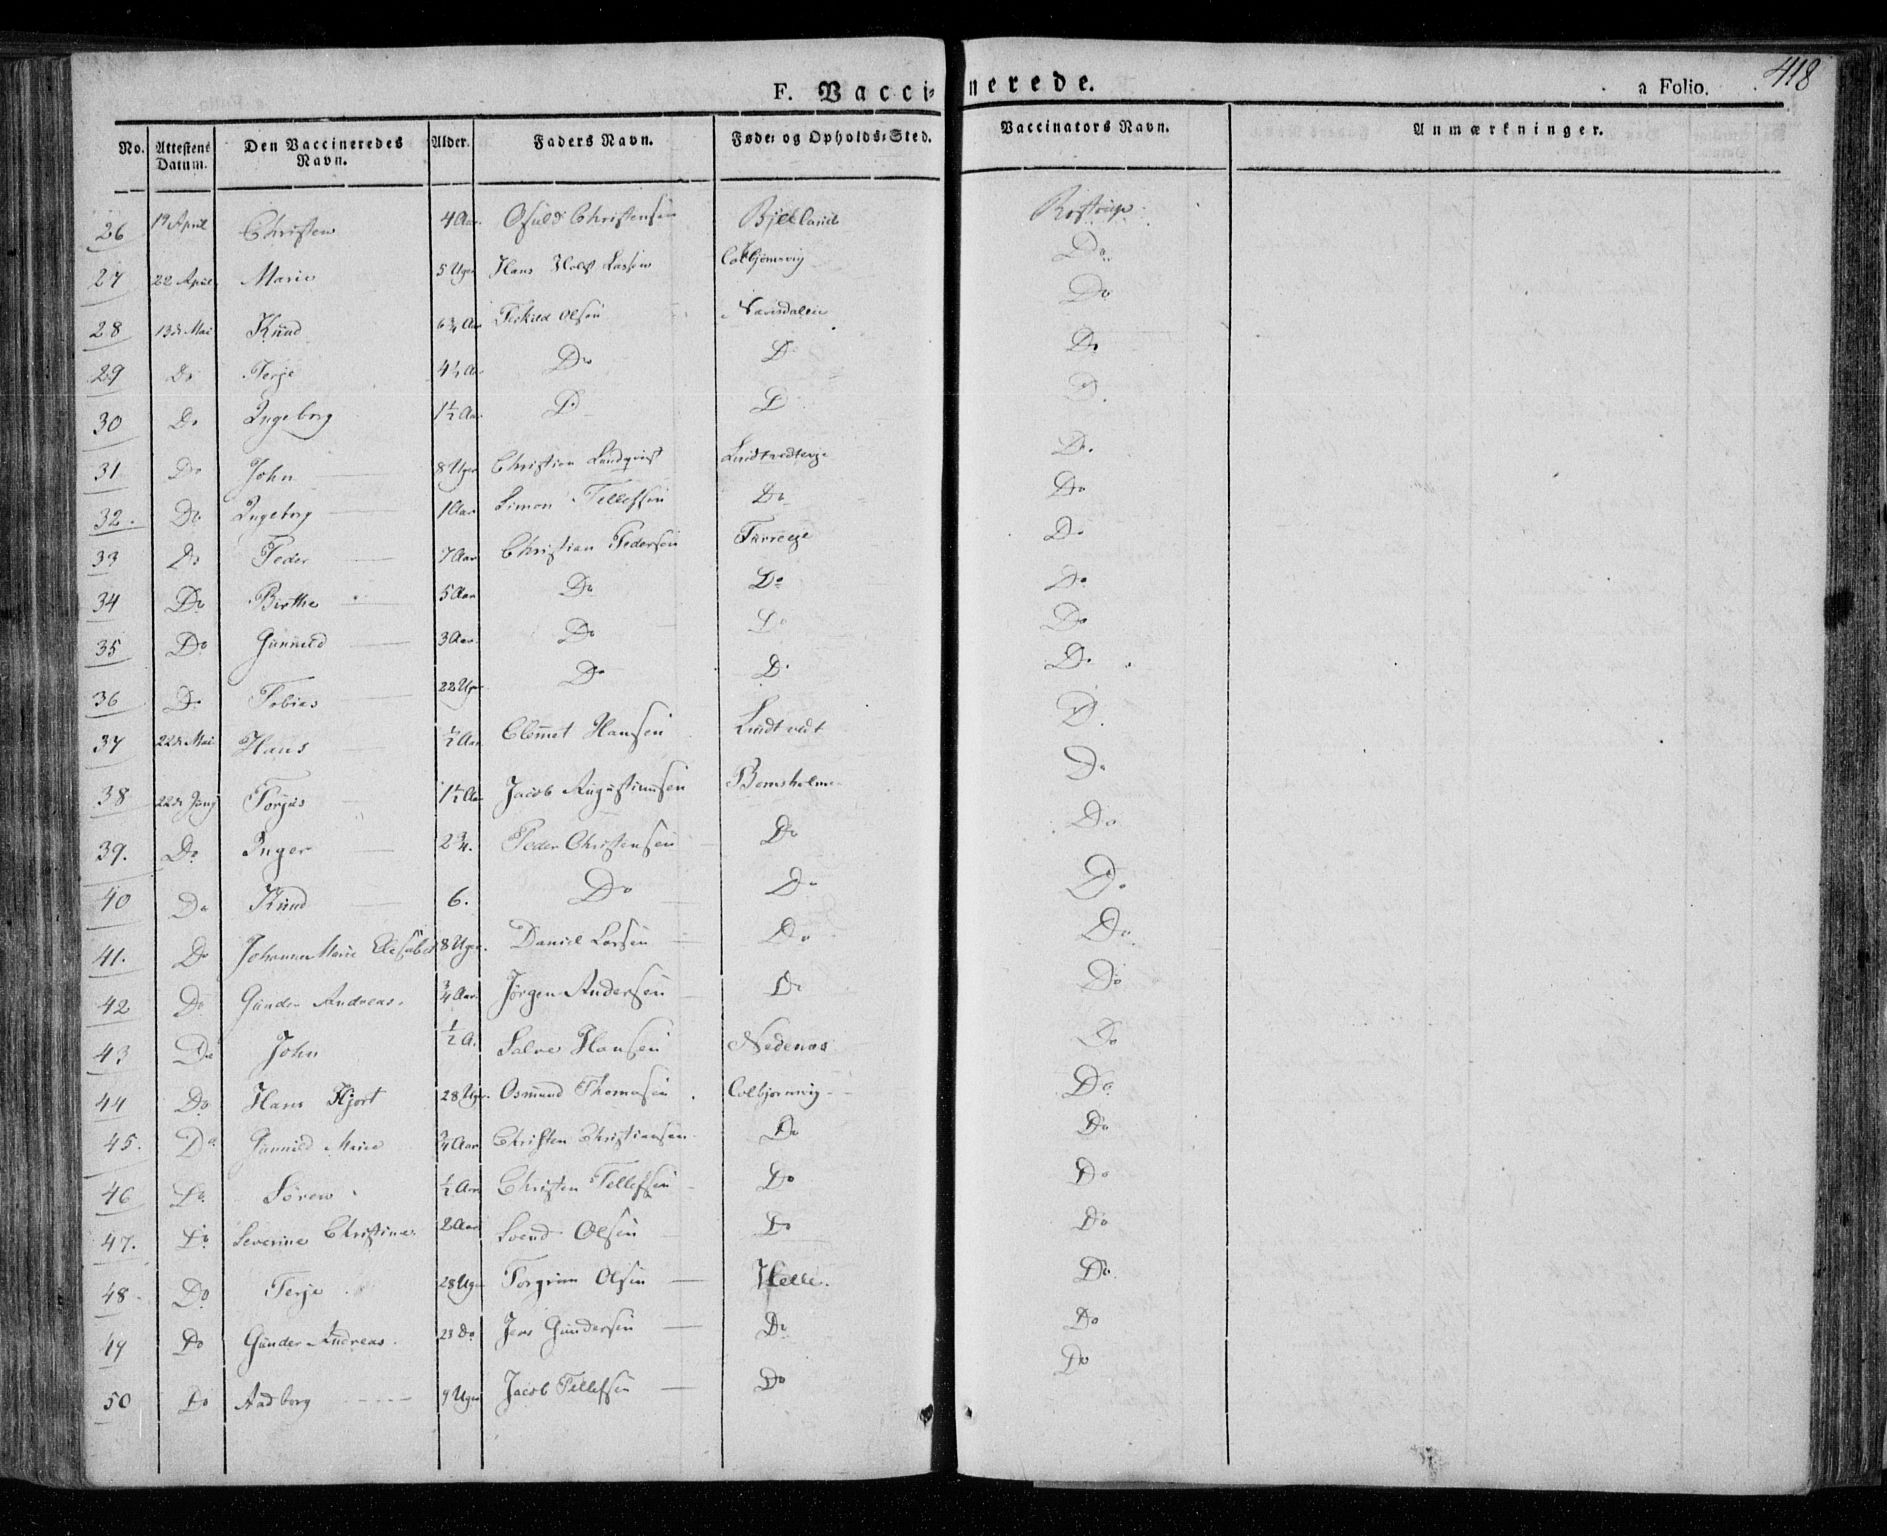 F. Vaccinerede. a Folio. 418
No. Attestens Datum. Den Vaccineredes Navn. Alder. Faders Navn. Føde- og Opholds-Sted. Vaccinators Navn. Anmærkninger.
26 19 April Christen 4 Aar Osuld Christensen Bjelland Rostrup
27 22 April Marie 5 Uger Hans Holst Lassen Colbjørnsvig Do
28 13de Mai Knud 6 3/4 Aar Olsen Do
29 Do Terje 4 1/2 Aar Do D Do
30 Do Ingeborg 1 1/2 Aar D D D.
31 Do John 8 Uger Christian Lundqvist Do.
32. Do Ingeborg 1 Aar Simon Tellefsen Do Do
33 Do Peder 7 Aar Christian Pedersen Do
34 Do Birthe 5 Aar Do Do Do
35 Do Gunnild 3 Aar Do Do Do
36 Do Tobias 22 Uger Do D. Do
37 22de Mai Hans 1/2 Aar Clemet Hansen Lindtvedt D.
38 22de Juny Torjus 1 1/2 Aar Jacob Augustinusen Bomsholmen Do
39. Do Inger 2 3/4. Peder Christensen Do Do
40 Do Knud 6. Do Do Do
41. Do Johanne Marie Elisabet 8 Uger. Daniel Larsen Do Do.
42 Do Gunder Andreas. 3/4 Aar. Jørgen Andersen Do Do
43 Do John 1/2 A. Salve Hansen Nedenæs Do
44 Do Hans Hjort 28 Uger. Osmund Thomesen Colbjørnsvig Do
45. Do Gunnild Marie 3/4 Aar Christen Christiansen Do Do
46 Do Sören 1/2 Aar Christen Tellefsen Do Do
47. Do Severine Christine. 2 Aar Svend Olsen Do Do
48 Do Terje 28 Uger Torgrim Olsen Helle. Do.
49 Do Gunder Andreas. 23 Do Jens Gundersen Do Do
50 Do Aadborg 9 Uger Jacob Tellefsen Do Do